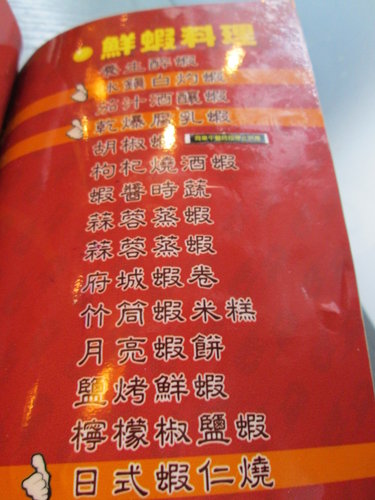 鮮蝦料理
養生醉蝦
冰鎮白灼蝦
茄汁酒釀蝦
乾爆腐乳蝦
胡椒蝦
枸杞燒酒蝦
蝦醬時蔬
蒜蓉蒸蝦
蒜蓉蒸蝦
府城蝦卷
竹筒蝦米糕
月亮蝦餅
鹽烤鮮蝦
檸檬椒鹽蝦
日式蝦仁燒